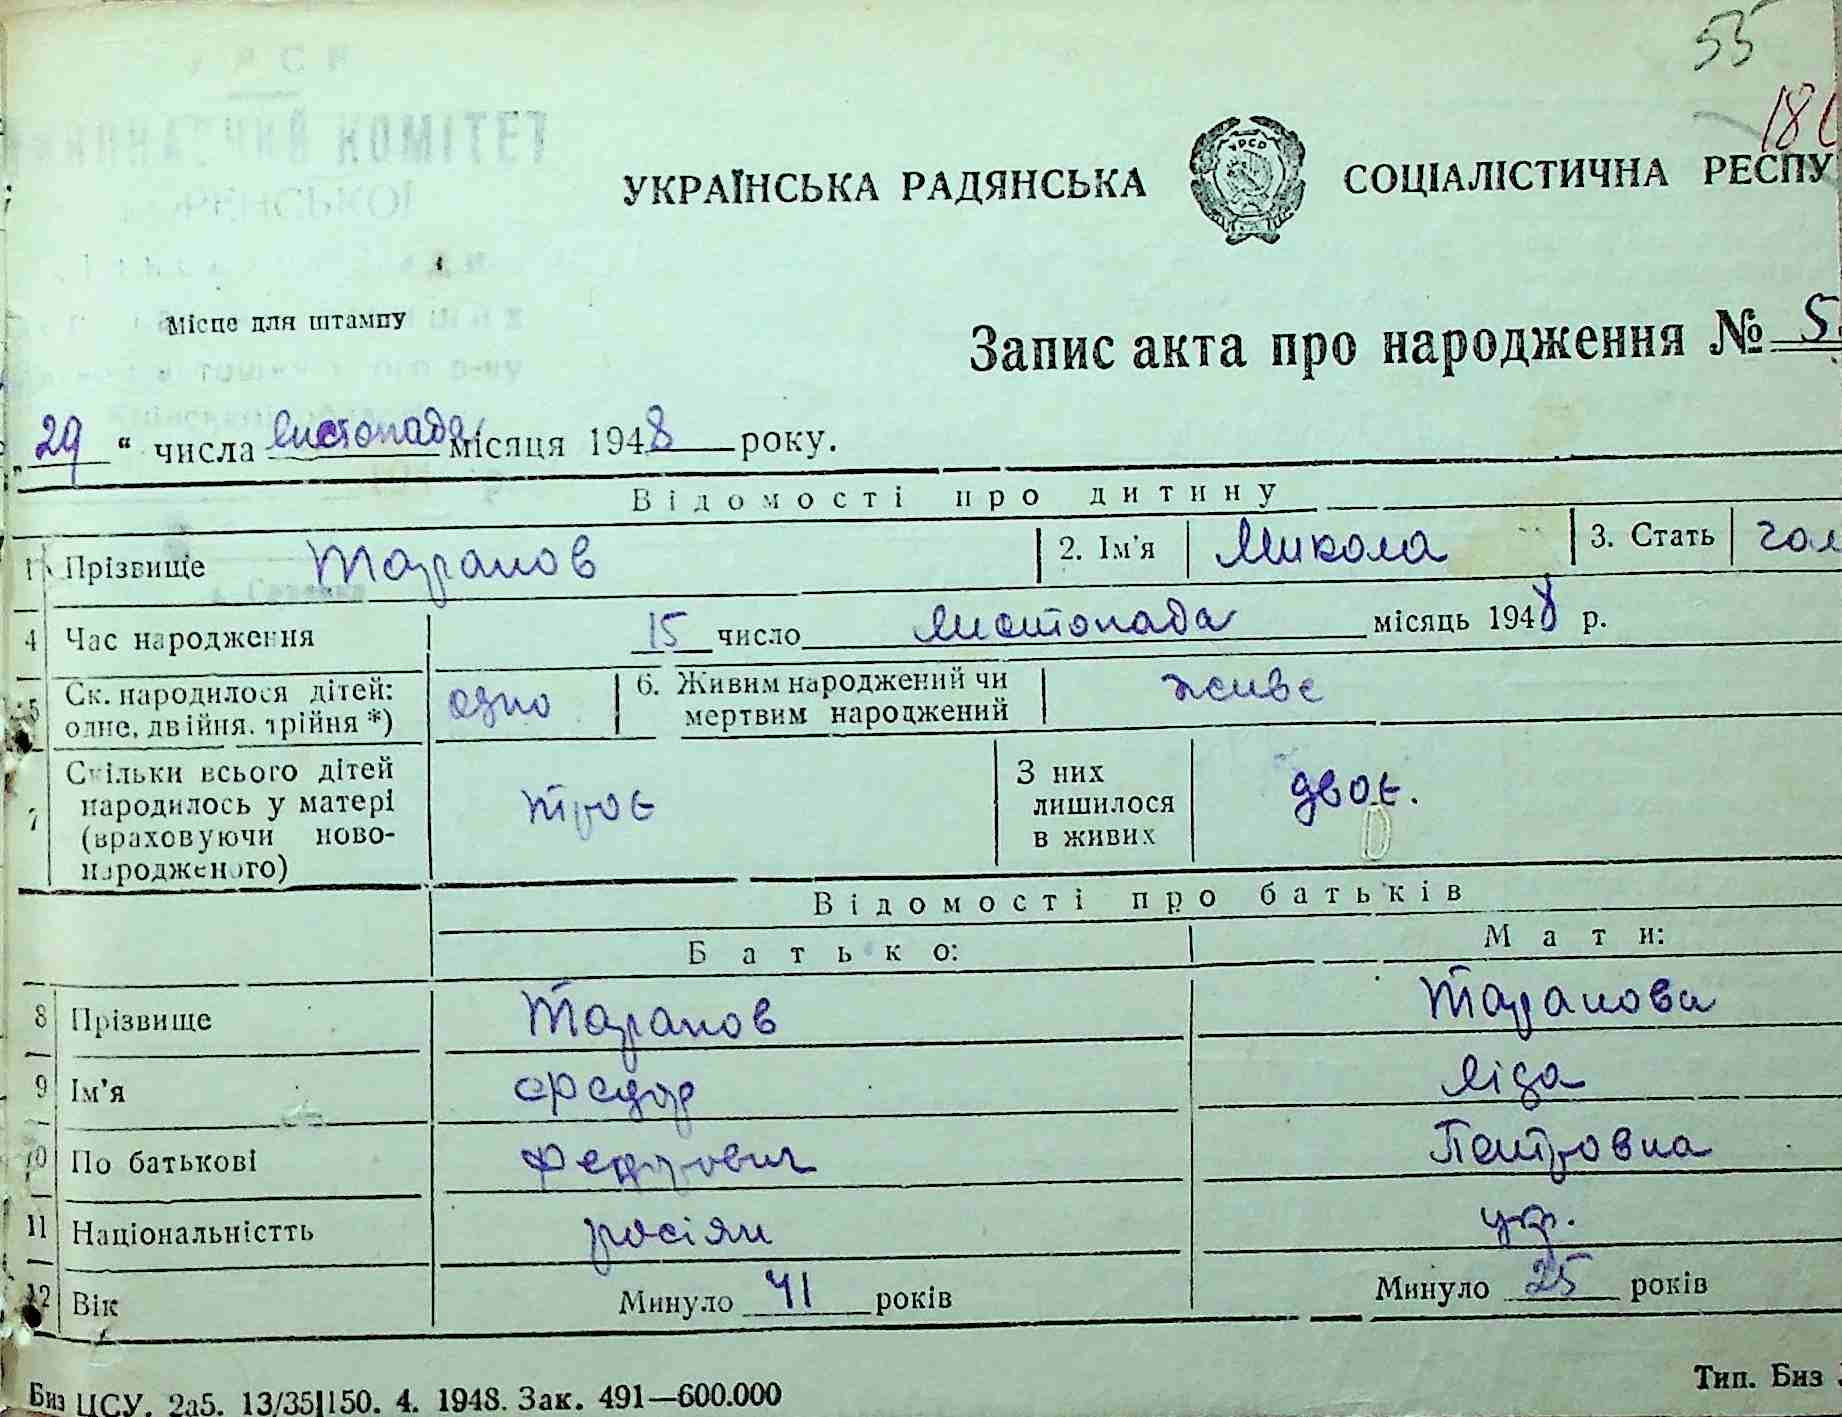 55
УКРАЇНСЬКА РАДЯНСЬКА СОЦІАЛІСТИЧНА РЕСПУ
УРСР
КОМІТЕТ
Місце для штампу
Запис акта про народження № 5
„29“ числа листопада місяця 1948 року.
Відомості про дитину
1 Прізвище Таранов 2. Ім'я Микола 3. Стать чол
4 Час народження 15 число листопада місяць 1948 р.
5 Ск. народилося дітей: одно 6. Живим народжений чи живе
одне, двійня, трійня *) мертвим народжений
7 Скільки всього дітей троє З них двоє.
народилось у матері лишилося
(враховуючи ново- в живих
народженого)
Відомості про батьків
Батько: Мати:
8 Прізвище Таранов Таранова
9 Ім'я Федор Ліда
10 По батькові Федорович Петровна
11 Національністть росіян укр.
12 Вік Минуло 41 років Минуло 25 років
Биз ЦСУ. 2а5. 13/35|150. 4. 1948. Зак. 491—600.000 Тип. Биз